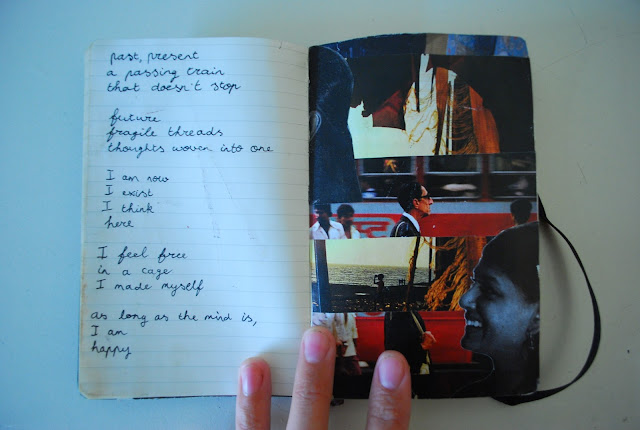 past, present
a passing train
that doesn't stop
future
fragile threads
thoughts woven into one
I am now
I exist
I think
here
I feel free
in a cage
I made myself
as long as the mind is,
I am
happy